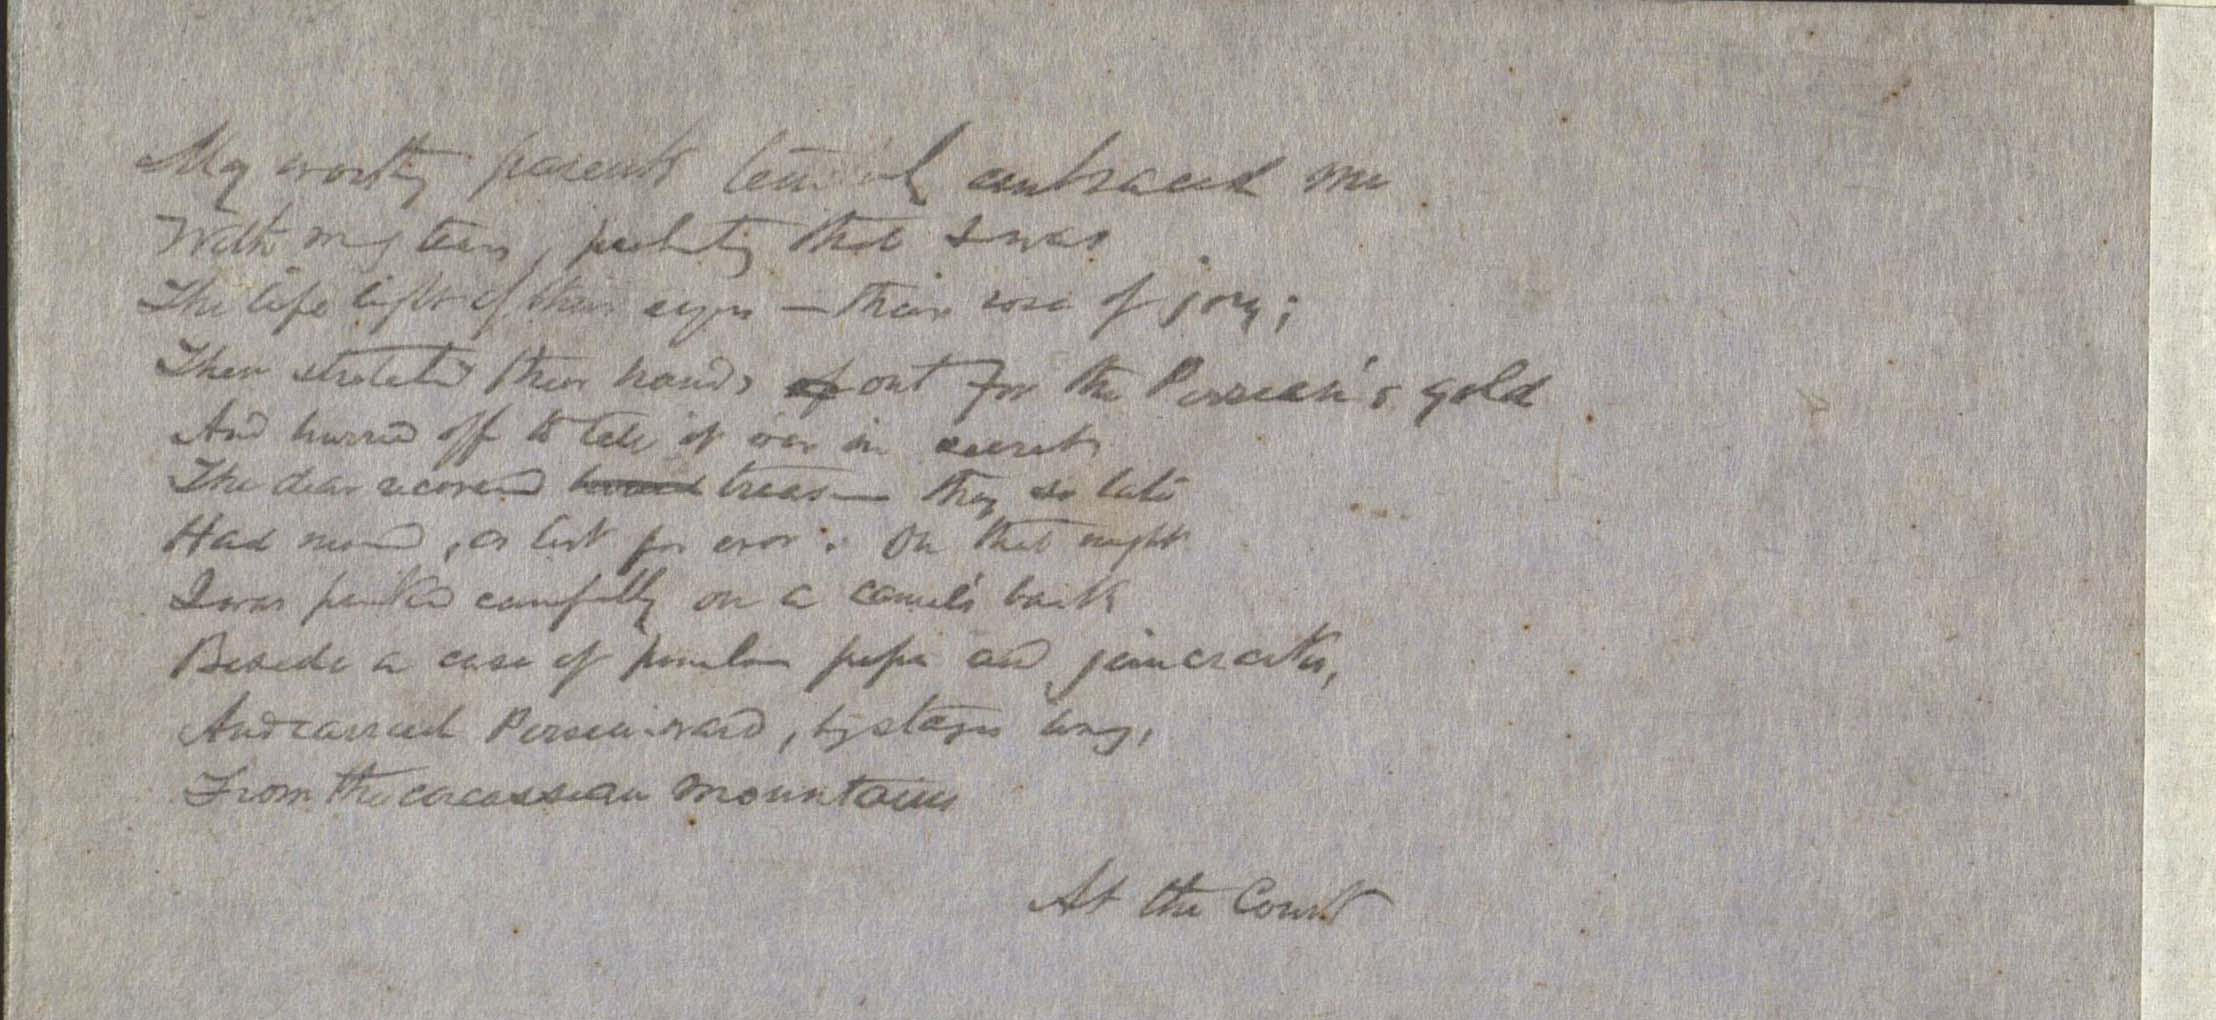 My worthy parents embraced me
With many tears, protesting that I was
The life light of their eyes — their rose of joy;
Then stretched their hands out for the Persian's gold
And hurried off to tell it over in secret
The dear recovered treasure they so late
Had mourned, as lost for ever. On that night
I was packed carefully on a camel's back
Beside a case of porcelain pipes and jimcracks,
And carried Persiaward, by stages long,
From the circassian mountains
At the Court